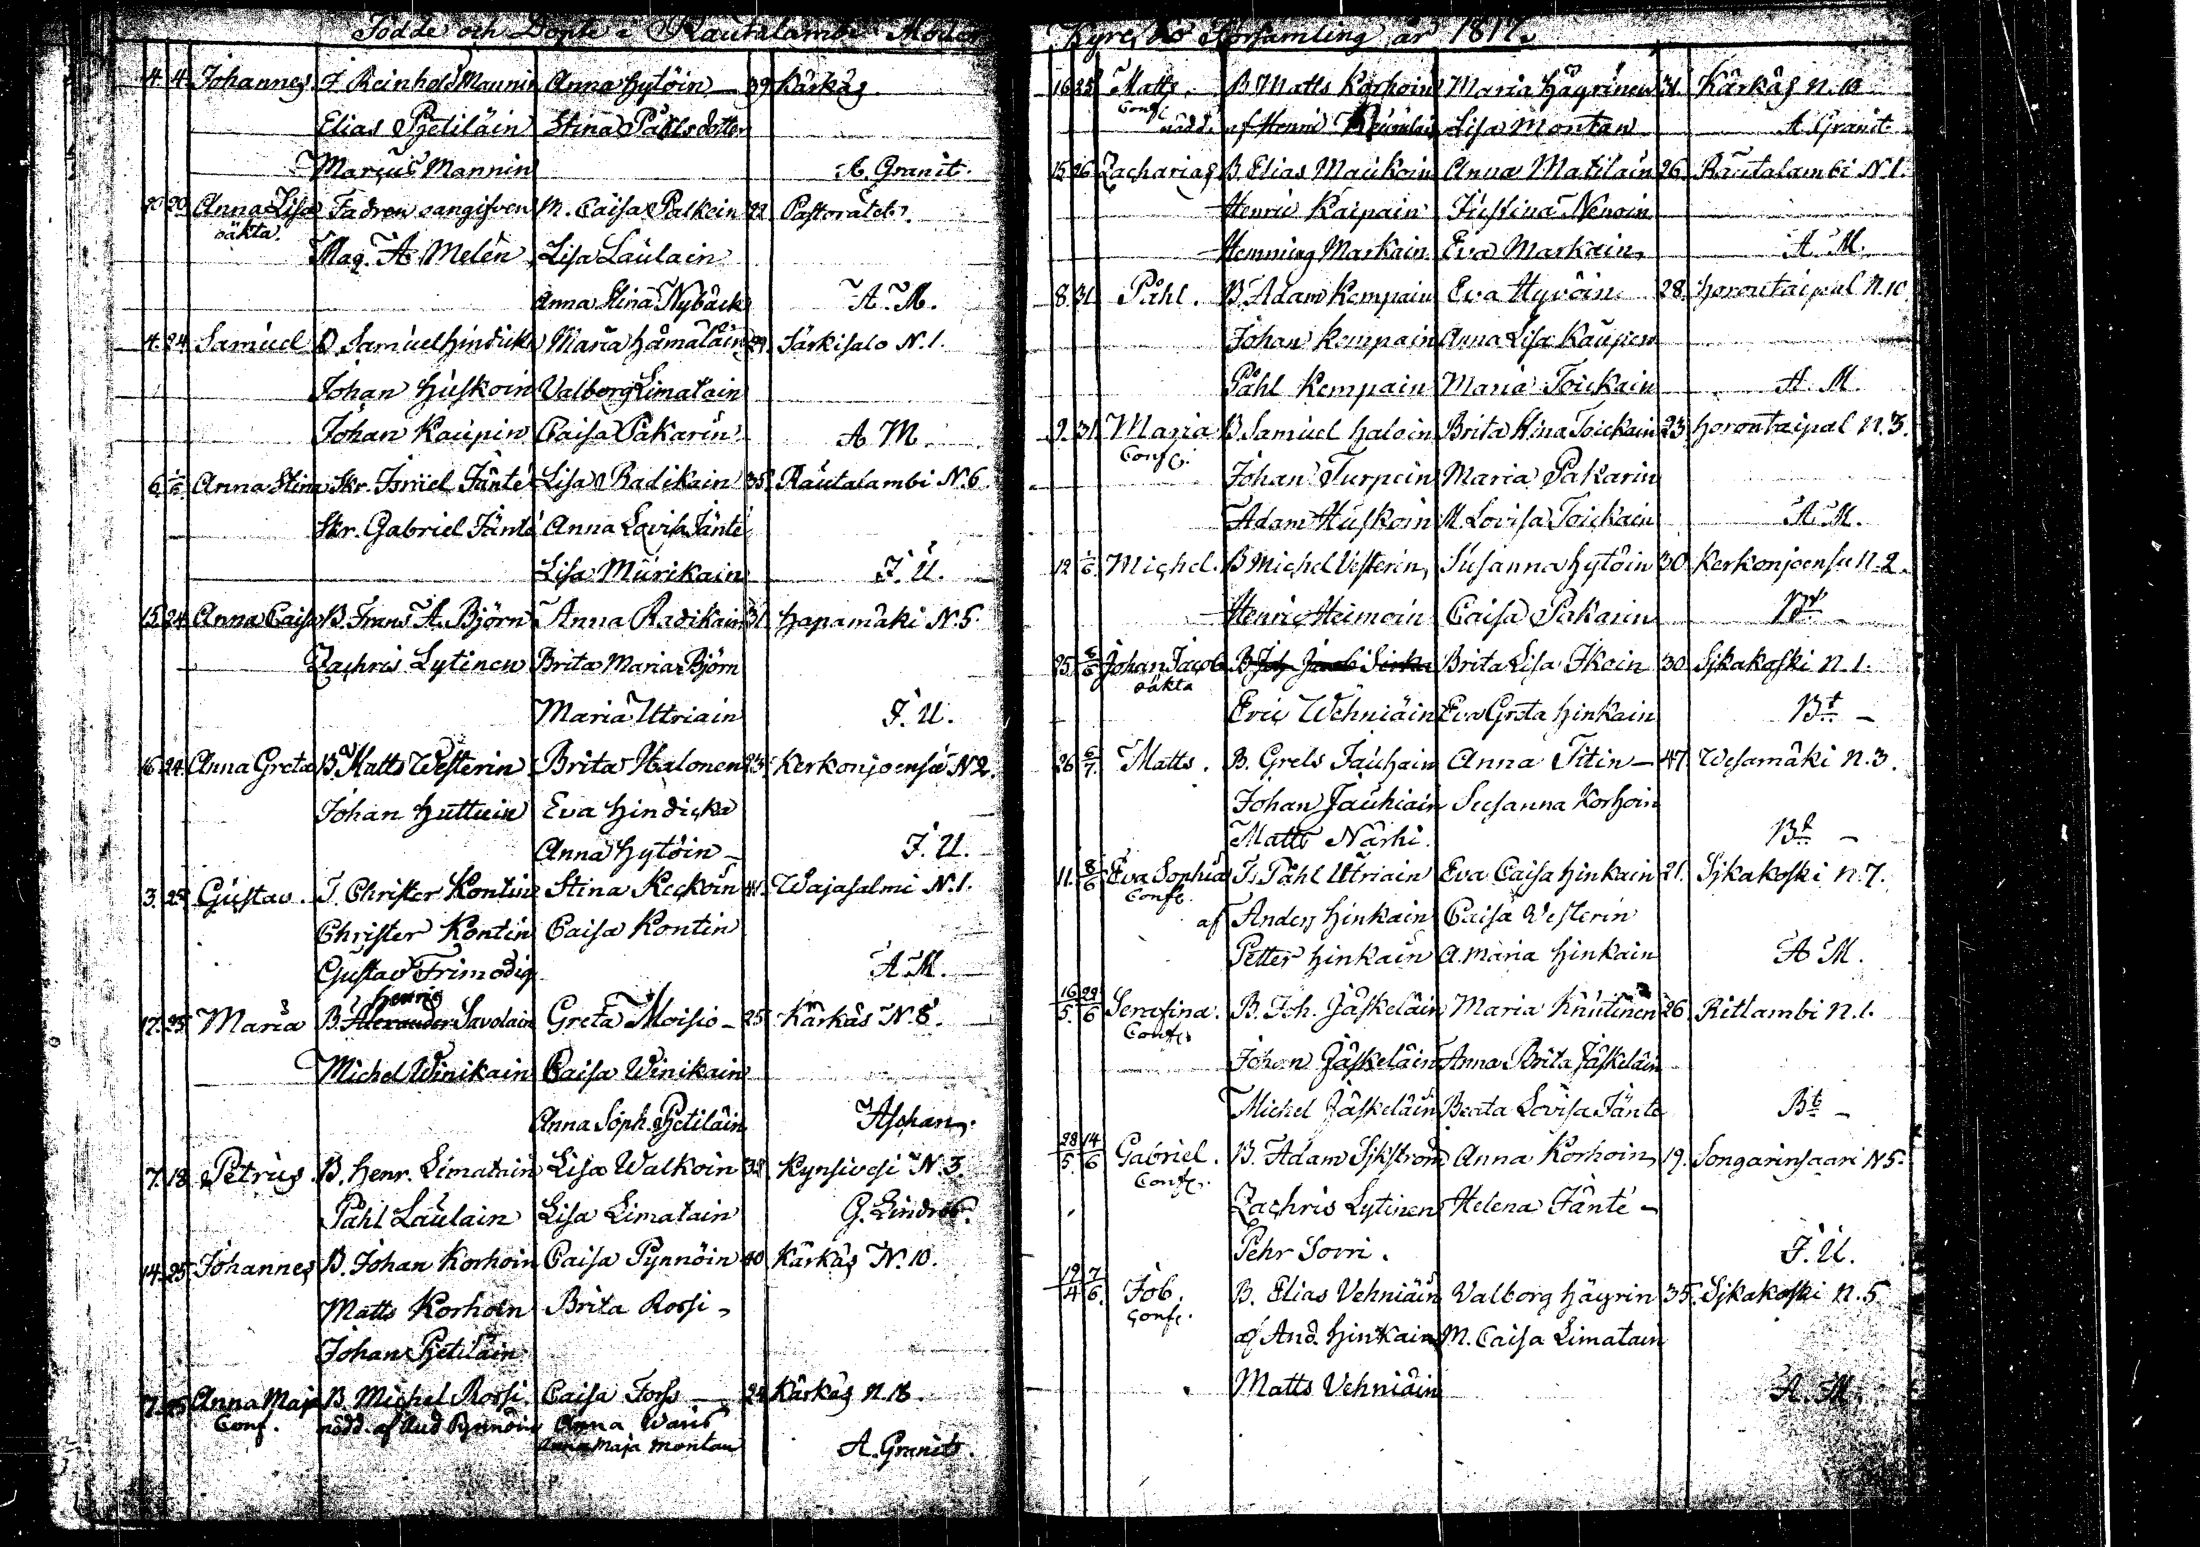 Födde och Döpte i Rautalambi Moder
4. 4. Johannes. T. Reinhold Mannin Anna Hytöin — 39 Kärkäs
Elias Pjetiläin Stina Påhlsdotter
Marcus Mannin A. Granit.
20 20 Anna Lisa Fadren oangifven M. Caisa Palkein 22 Pastoratet.
oäkta. Mag. A Melén Lisa Laulain
Anna Stina Nybäck A. M.
4. 24 Samuel B Samuel Hindicka Maria Hämäläin 29. Särkisalo N. 1.
Johan Huskoin Valborg Limatain
Johan Kaupin Caisa Pakarin A M.
6. Anna Stina Skr. Israel Jänté Lisa Radikain 35. Rautalambi N. 6
Skr. Gabriel Jänté Anna Lovisa Jänté
Lisa Murikain J. U.
15 24 Anna Caisa B. Frans A. Björn Anna Radikain 31. Hapamäki N. 5.
Zachris Lytinen Brita Maria Björn
Maria Utriain J. U.
16 24. Anna Greta B. Matts Westerin Brita Halonen 23 Kerkonjoensu N 2.
Johan Huttuin Eva Hindicka
Anna Hytöin — J. U.
3. 25 Gustav. T. Christer Kontin Stina Keckoin 41. Wajasalmi N. 1.
Christer Kontin Caisa Kontin
Gustav Frimodig A. M.
Henric
17. 25 Maria B. Alexander Savolain Greta Moisio — 25 Kärkäs N. 8.
Michel Winikain Caisa Winikain
Anna Soph. Pjetiläin Aschan.
7. 18 Petrus. B. Henr. Limatain Lisa Walkoin 32 Kynsivesi N. 3.
Påhl Laulain Lisa Limatain G. Lindroos.
14. 25 Johannes B. Johan Korhoin Caisa Pynnöin 40 Kärkäs N. 10.
Matts Korhoin Brita Rossi
Johan Pjetiläin
7. 25 Anna Maja B Michel Rossi. Caisa Forss — 24 Kärkäs N. 18.
Conf. nödd. af And Pynnöin Anna Waris
Anna Maja Montan A. Granit.
Kyrcko Församling år 1817.
16 25 Matts. B Matts Korhoin Maria Häyrinen 31. Kärkäs N. 10
Conf. nödd. af Henric Lisa Montan A Granit
15 26 Zacharias B. Elias Maukoin Anna Matilain 26. Rautalambi N. 1.
Henric Kaipain Justina Nenoin
Hemming Markain Eva Markain A. M.
8. 31. Påhl. B. Adam Kempain Eva Hyvöin 28. Horontaipal N. 10.
Johan Kempain Anna Lisa Kaupin
Påhl Kempain Maria Toickain A. M.
9. 31 Maria B. Samuel Haloin Brita Stina Toickain 23. Horontaipal N. 3.
Conf. Johan Turpein Maria Pakarin
Adam Huskoin M. Lovisa Toickain A. M.
12 1/6. Michel. B Michel Vesterin Susanna Hytöin 30. Kerkonjoensu N. 2.
Henric Heimoin Caisa Pakarin Bt
25 6/6 Johan Jacob B Joh. Jacob Brita Lisa Ikoin 30. Sjkakoski N. 1.
oäkta Eric Wehniäin Eva Greta Hinkain Bt —
26 6/7. Matts. B. Grels Jauhain Anna Titin — 47. Wesamäki N. 3.
Johan Jauhiain Susanna Korhoin
Matts Närhi. Bt —
11. 8/6 Eva Sophia T. Påhl Utriain Eva Caisa Hinkain 21. Sjkakoski N. 7.
Conf. af Anders Hinkain Caisa Vesterin
Petter Hinkain A. Maria Hinkain A M.
16/5. 29/6 Serafina. B. Joh. Jäskeläin Maria Knutinen 26. Ritlambi N. 1.
Conf. Johan Jäskeläin Anna Brita Jäskeläin
Michel Jäskeläin Beata Lovisa Jänté Bt —
28/5 14/6 Gabriel. B. Adam Sjkström Anna Korhoin 19. Songarinsaari N 5.
Conf. Zachris Lytinen Helena Jänté —
Pehr Sorri. J. U.
19/4 7/6. Job. B. Elias Vehniäin Valborg Häyrin 35. Sjkakoski N. 5
Conf. af And. Hinkain M. Caisa Limatain
Matts Vehniäin A. M.